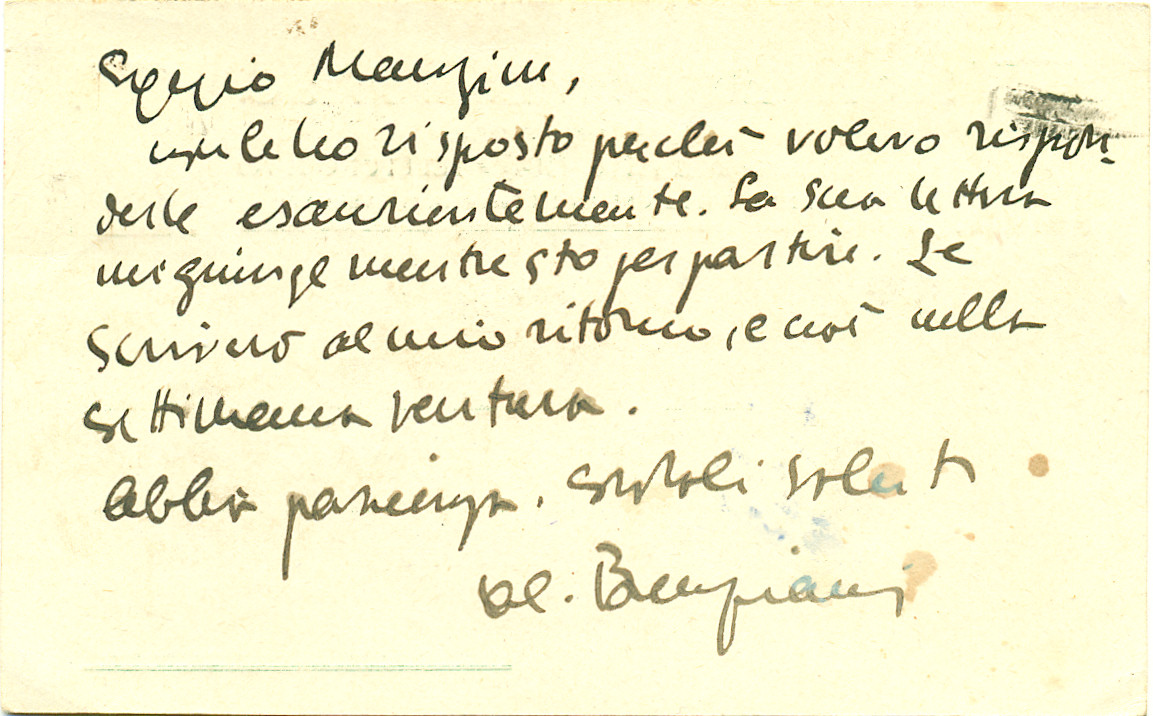 Egregio Manzini,
non le ho risposto perché volevo rispon-
derle esaurientemente. La sua lettera
mi giunge mentre sto per partire. Le
scriverò al mio ritorno, e cioè nella
settimana ventura.
Abbia pazienza. Cordiali saluti